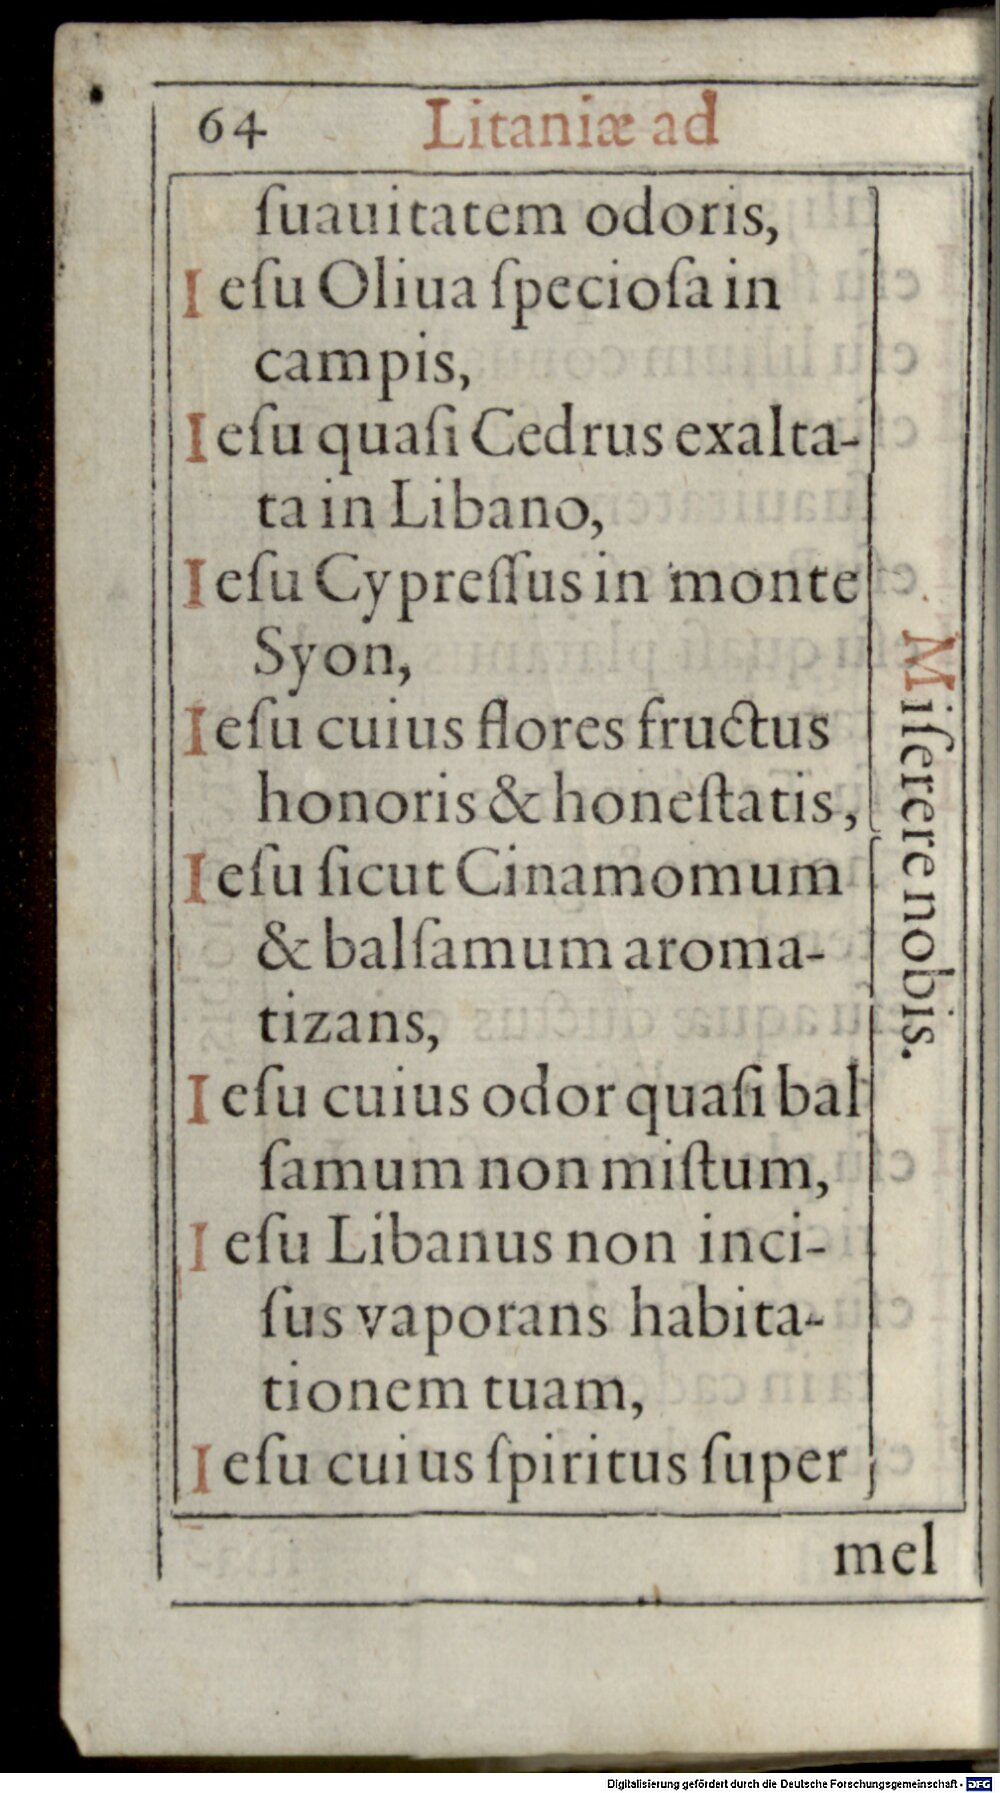 64 Litaniæ ad
ſuauitatem odoris,
Ieſu Oliua ſpecioſa in
campis,
Ieſu quaſi Cedrus exalta-
ta in Libano,
Ieſu Cypreſſus in monte
Syon,
Ieſu cuius flores fructus
honoris & honeſtatis,
Ieſu ſicut Cinamomum
& balſamum aroma-
tizans,
Ieſu cuius odor quaſi bal
ſamum non miſtum,
Ieſu Libanus non inci-
ſus vaporans habita-
tionem tuam,
Ieſu cuius ſpiritus ſuper
Miſerere nobis.
mel
Digitalisierung gefördert durch die Deutsche Forschungsgemeinschaft - DFG